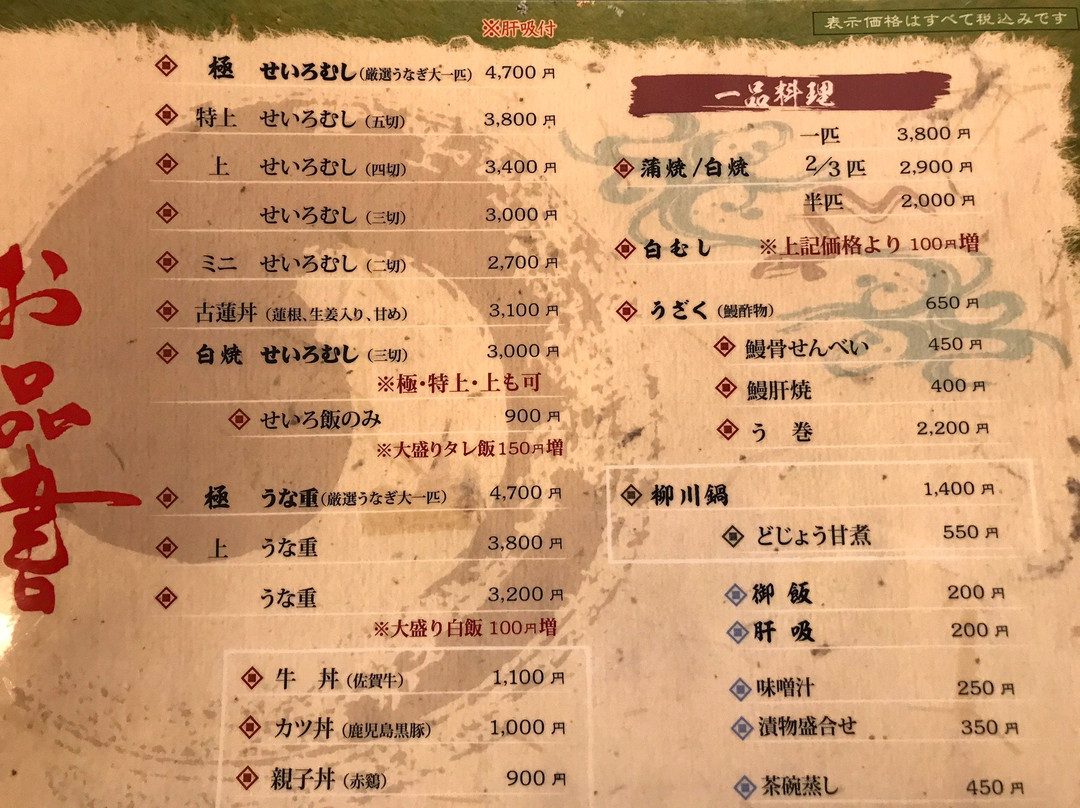 ※肝吸付
表示価格はすべて税込みです
お品書
極 せいろむし(厳選うなぎ大一匹) 4,700円
特上 せいろむし(五切) 3,800円
上 せいろむし(四切) 3,400円
せいろむし(三切) 3,000円
ミニ せいろむし(二切) 2,700円
古蓮丼(蓮根、生姜入り、甘め) 3,100円
白焼 せいろむし(三切) 3,000円
※極・特上・上も可
せいろ飯のみ 900円
※大盛りタレ飯150円増
極 うな重(厳選うなぎ大一匹) 4,700円
上 うな重 3,800円
うな重 3,200円
※大盛り白飯100円増
牛丼(佐賀牛) 1,100円
カツ丼(鹿児島黒豚) 1,000円
親子丼(赤鶏) 900円
一品料理
一匹 3,800円
蒲焼/白焼 2/3匹 2,900円
半匹 2,000円
白むし ※上記価格より100円増
うざく(鰻酢物) 650円
鰻骨せんべい 450円
鰻肝焼 400円
う巻 2,200円
柳川鍋 1,400円
どじょう甘煮 550円
御飯 200円
肝吸 200円
味噌汁 250円
漬物盛合せ 350円
茶碗蒸し 450円